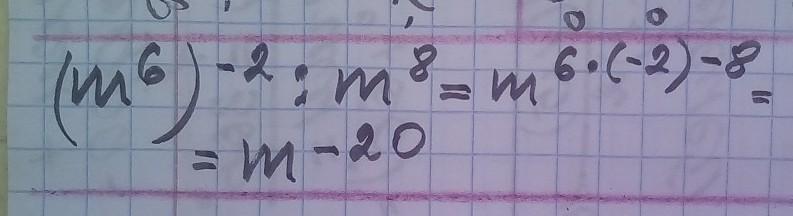 (m⁶)⁻² : m⁸ = m⁶·⁽⁻²⁾⁻⁸ =
= m⁻²⁰